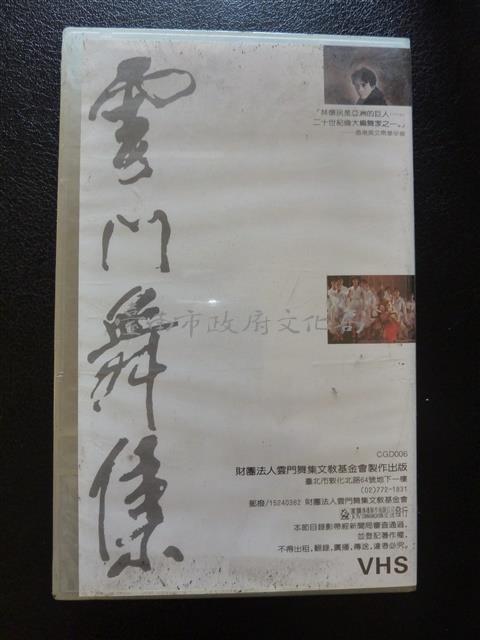 雲門舞集
「林懷民是亞洲的巨人……
二十世紀偉大編舞家之一。」
市政府文化局
CGD006
財團法人雲門舞集文教基金會製作出版
臺北市敦化北路64號地下一樓
(02)772-1831
郵撥/15240362 財團法人雲門舞集文教基金會
發行
本節目錄影帶經新聞局審查通過,
並登記著作權,
不得出租,翻錄,廣播,傳送,違者必究。
VHS